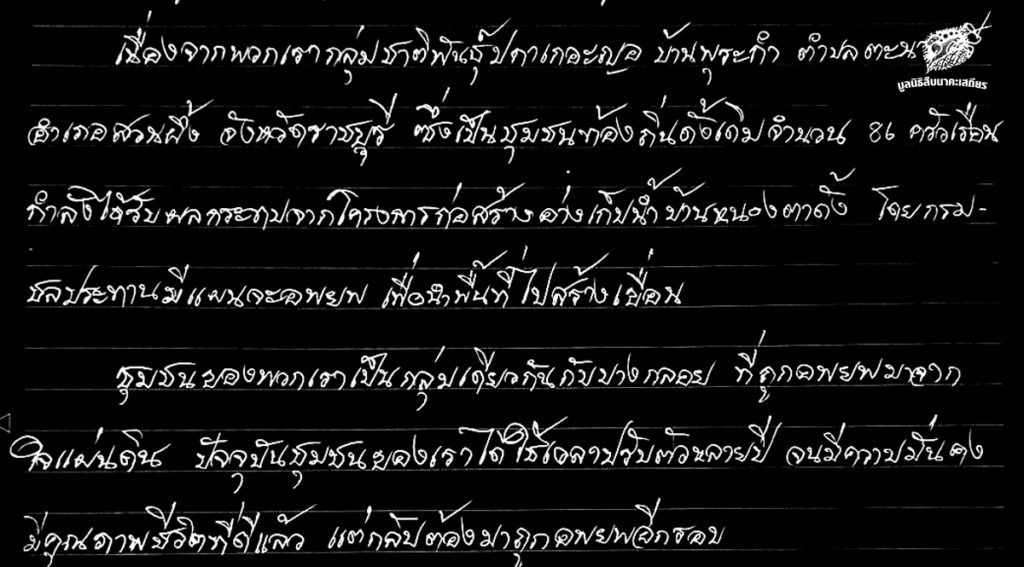 เนื่องจากพวกเรากลุ่มชาติพันธุ์ปกาเกอะญอ บ้านพุระกำ ตำบลตะนา
มูลนิธิสืบนาคะเสถียร
อำเภอสวนผึ้ง จังหวัดราชบุรี ซึ่งเป็นชุมชนท้องถิ่นดั้งเดิมจำนวน 86 ครัวเรือน
กำลังได้รับผลกระทบจากโครงการก่อสร้างอ่างเก็บน้ำบ้านหนองตาดั้ง โดยกรม-
ชลประทานมีแผนจะอพยพ เพื่อนำพื้นที่ไปสร้างเขื่อน
ชุมชนของพวกเราเป็นกลุ่มเดียวกันกับบางกลอย ที่ถูกอพยพมาจาก
ใจแผ่นดิน ปัจจุบันชุมชนของเราได้ใช้เวลาปรับตัวหลายปี จนมีความมั่นคง
มีคุณภาพชีวิตที่ดีแล้ว แต่กลับต้องมาถูกอพยพอีกรอบ